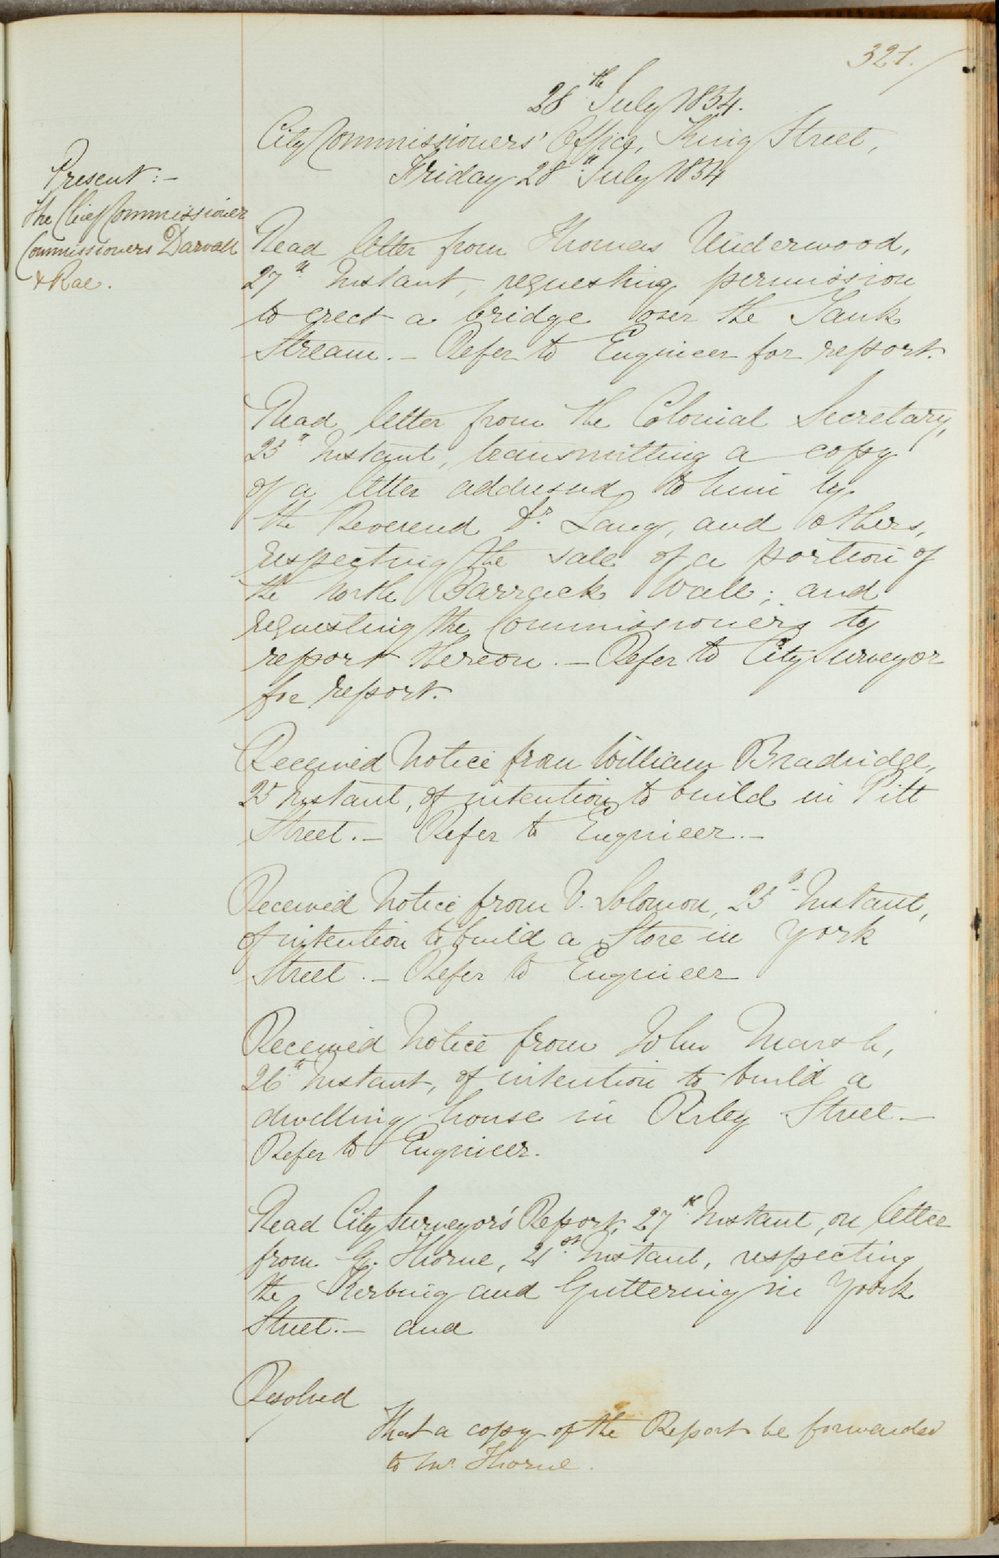 321.
28th July 1854.
City Commissioners' Office, King Street,
Friday 28th July 1854
Present:-
The Chief Commissioner
Commissioners Darvall
& Rae.
Read letter from Thomas Underwood,
27th Instant, requesting permission
to erect a bridge over the Tank
Stream. - Refer to Engineer for report.
Read letter from the Colonial Secretary,
25th Instant, transmitting a copy
of a letter addressed to him by
the Reverend Dr. Lang, and others,
respecting the sale of a portion of
the North Barrack Wall; and
requesting the Commissioners to
report thereon. - Refer to City Surveyor
for report.
Received Notice from William Bradridge,
25 Instant, of intention to build in Pitt
Street. - Refer to Engineer. -
Received Notice from V. Solomon, 25th Instant,
of intention to build a Store in York
Street. - Refer to Engineer
Received Notice from John Marsh,
26th Instant, of intention to build a
dwelling house in Riley Street. -
Refer to Engineer.
Read City Surveyor's Report, 27th Instant, on letter
from G. Thorne, 21st Instant, respecting
the Kerbing and Guttering in York
Street. - and
Resolved
That a copy of the Report be forwarded
to Mr. Thorne.